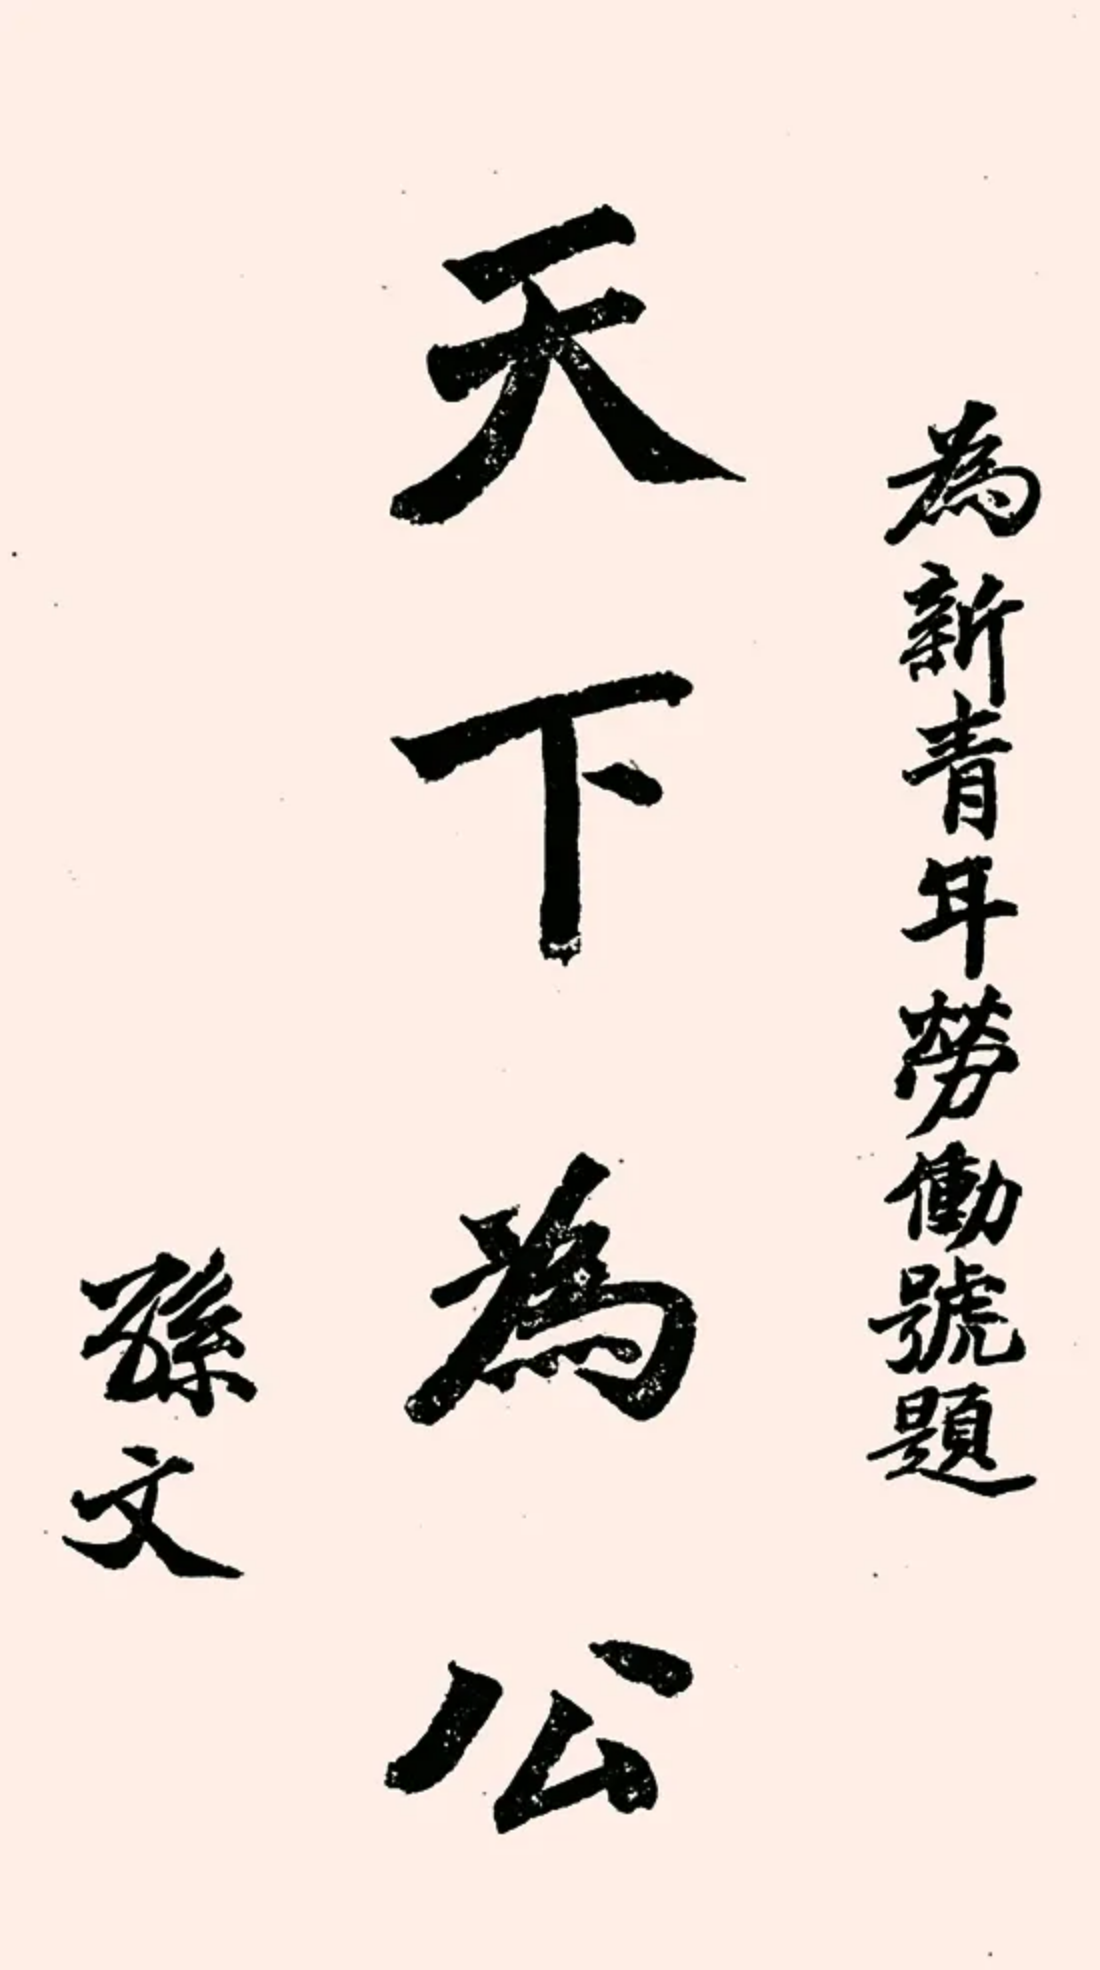 為新青年勞働號題
天下為公
孫文